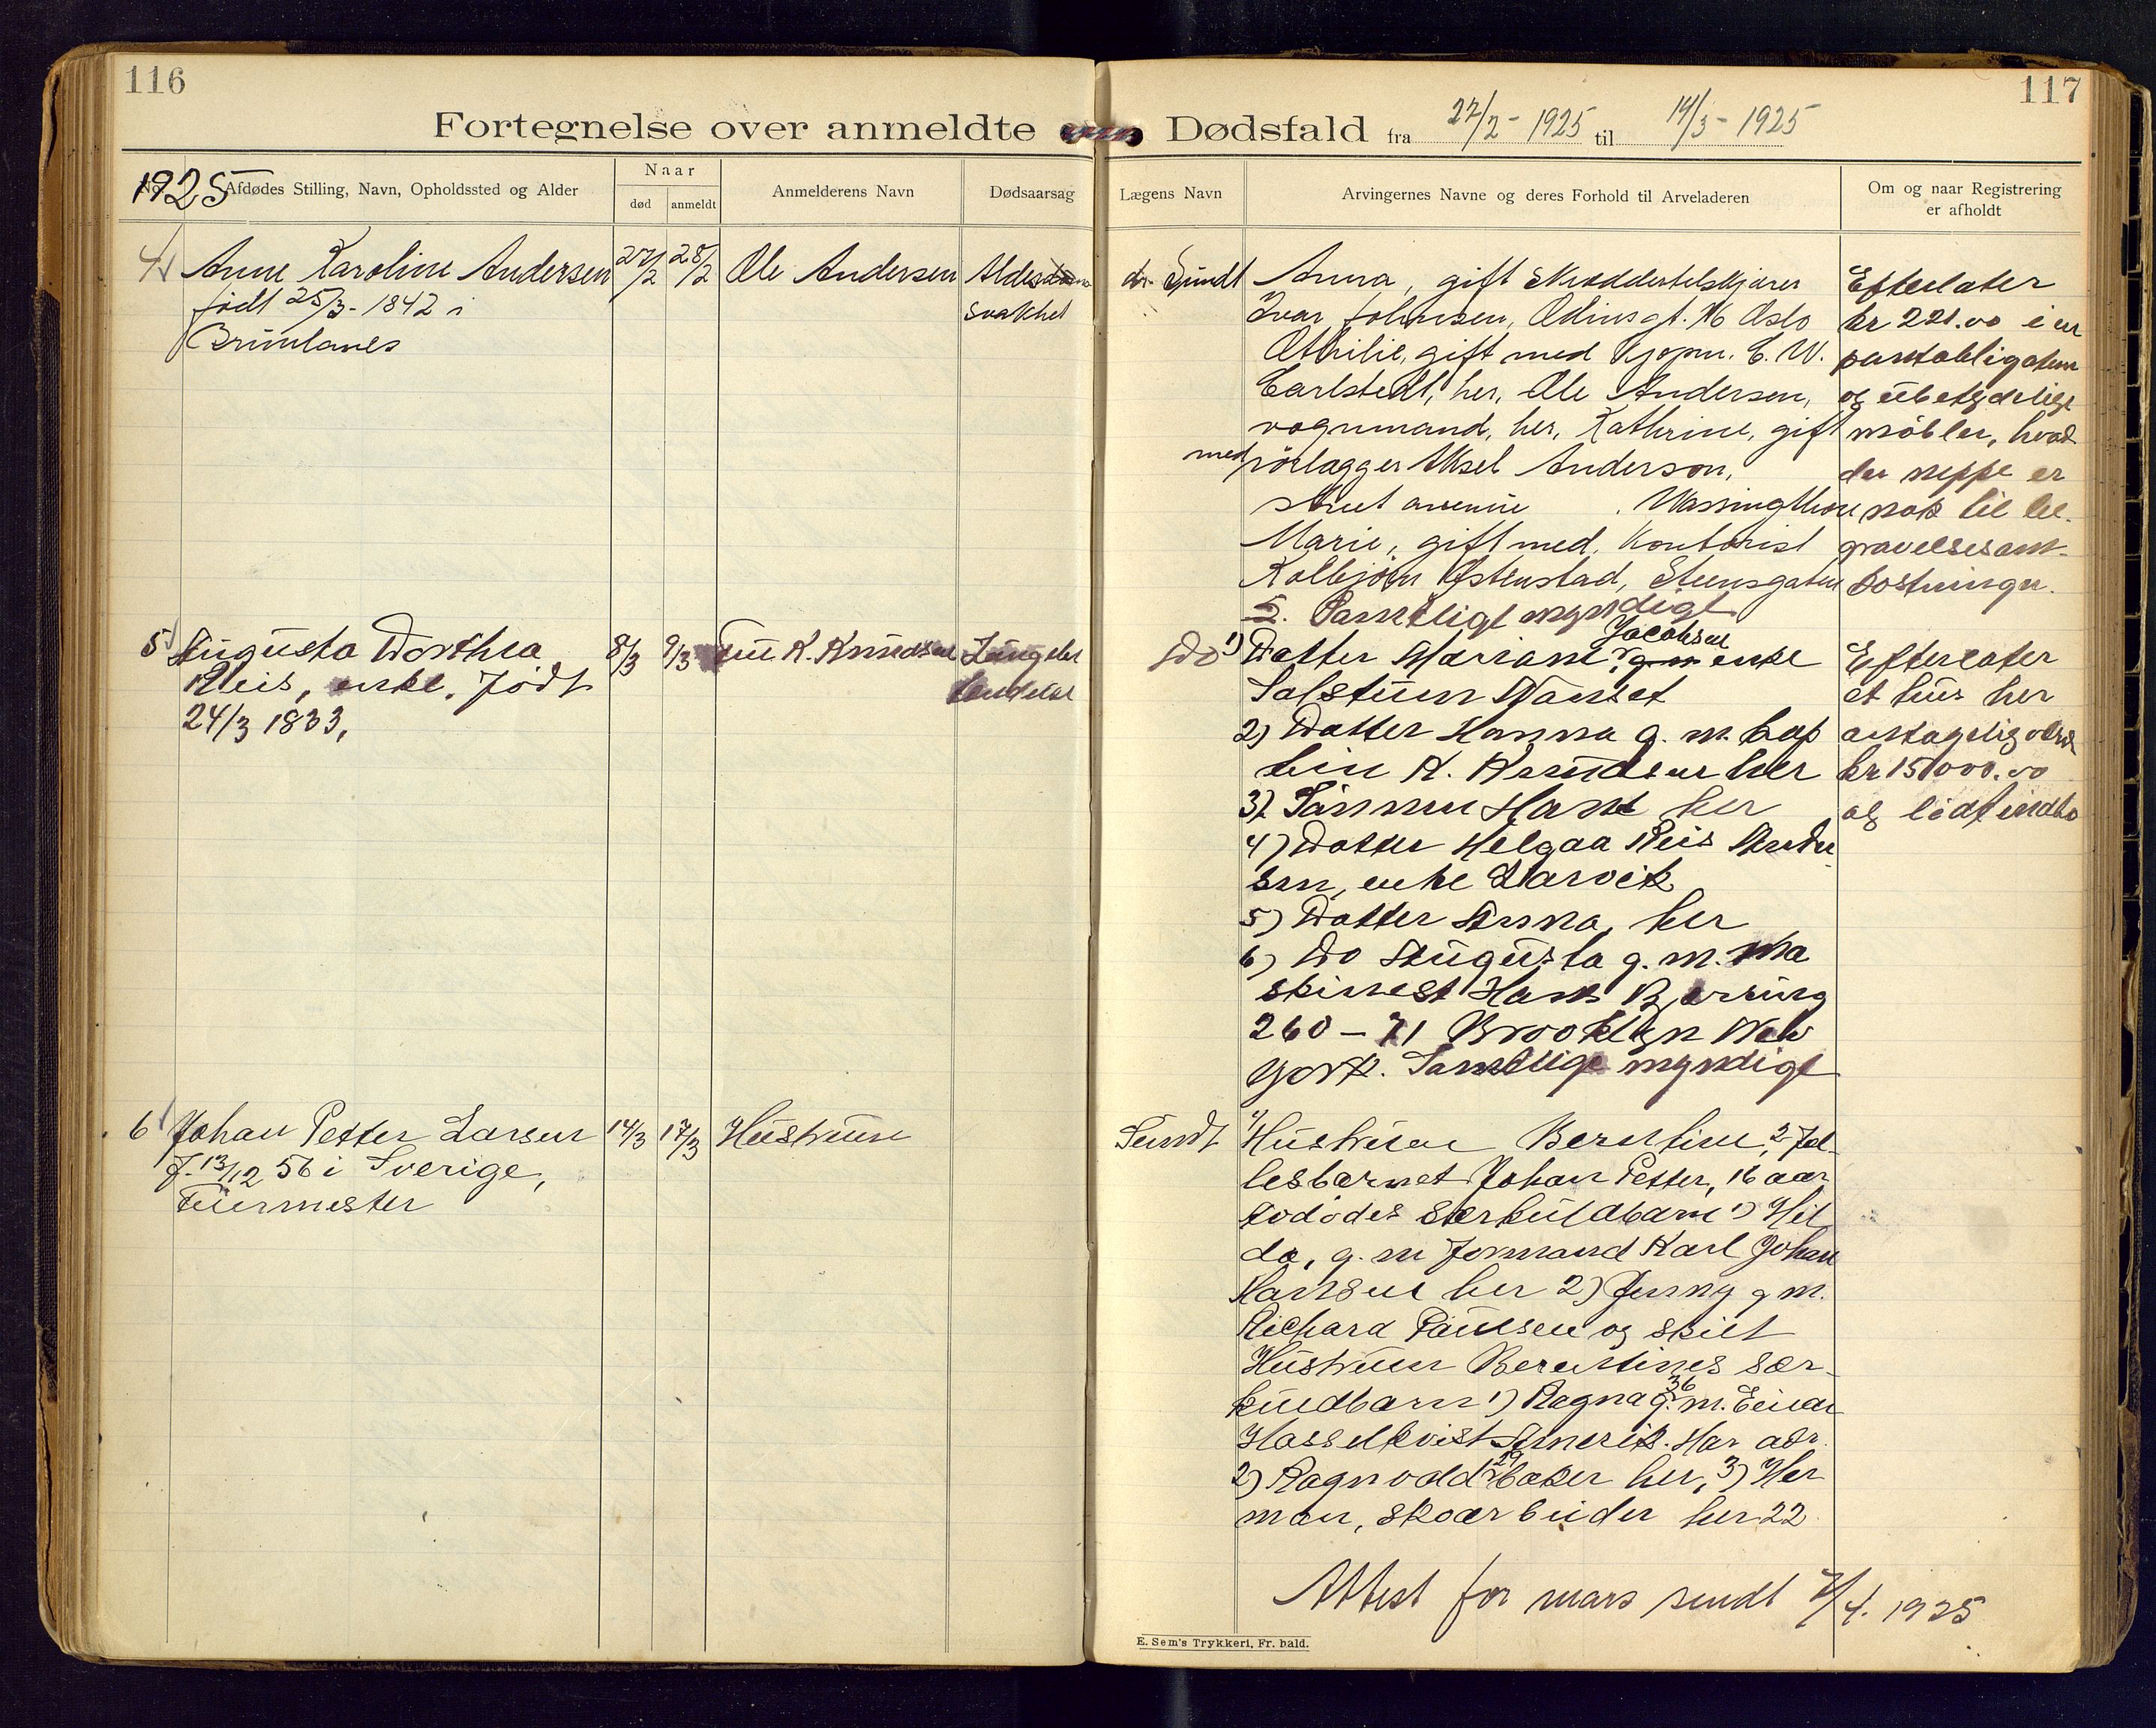 116
Fortegnelse over anmeldte
1925
No.
Afdødes Stilling, Navn, Opholdssted og Alder
Naar
død
anmeldt
Anmelderens Navn
Dødsaarsag
4 Anne Karoline Andersen
født 25/3-1842 i
Brunlanes
27/2
28/2
Ole Andersen
Alders
svakhet
5 Augusta Dorthea
Reis, enke. Født
24/3 1833,
8/3
9/3
K. Knudsen
Lungebe
tendelse
6 Johan Petter Larsen
f. 13/12 56 i Sverige,
Murmester
14/3
17/3
Hustruen
117
Dødsfald fra 27/2-1925 til 14/3-1925
Lægens Navn
Arvingernes Navne og deres Forhold til Arveladeren
Om og naar Registrering
er afholdt
dr. Sundt
Anna, gift
Ivar Johnsen, Odinsgt. 16 Oslo
Othilie, gift med Kjøpm. C. W.
Carlstedt, her, Ole Andersen,
vognmand, her, Kathrine, gift
med rørlægger Aksel Anderson,
avenue . Wassingthon
Marie, gift med, Kontorist
Kolbjørn Østenstad, Steensgaten
5. Samtlige myndige
Efterlater
kr 221.00 i en
pantobligation
og ubetydelige
møbler, hvad
der neppe er
nok til be-
gravelsesom-
kostninger.
Do
1) Datter Mariane Jacobsen enke
Salstuen Nanset
2) Datter Hanna g. m. kap
tein K. Knudsen her
3) Sønnen Hans her
4) Datter Helgaa Reis Ander
sen, enke Larvik
5) Datter Anna, her
6) Do Augusta g. m. Ma
skinest Hans Bjerring
260-71 Brooklyn New
York. Samtlige myndige
Efterlater
et hus her
antagelig værd
kr 15000.00
og lidt indbo
Sundt
1) Hustruen Berntine, 2 Fæl-
lesbarnet Johan Petter, 16 aar
avdødes særkuldbarn 1) Hil
da, g. m formand Karl Johan
Hansen her 2) Jenny g m.
Richard Paulsen og skilt
Hustruen Berntines sær-
kuldbarn 1) Ragna 36 g. m. Einar
Hasselkvist Amerik. Har adr.
2) Ragnvald 29 baker her, 3) Her
man, skoarbeider her 22
Attest for mars sendt 7/4. 1925
E. Sem's Trykkeri, Fr. hald.